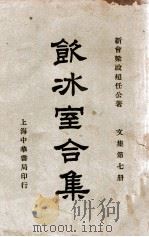 新會梁啟超任公著
文集第七册
飲冰室合集
上海中華書局印行